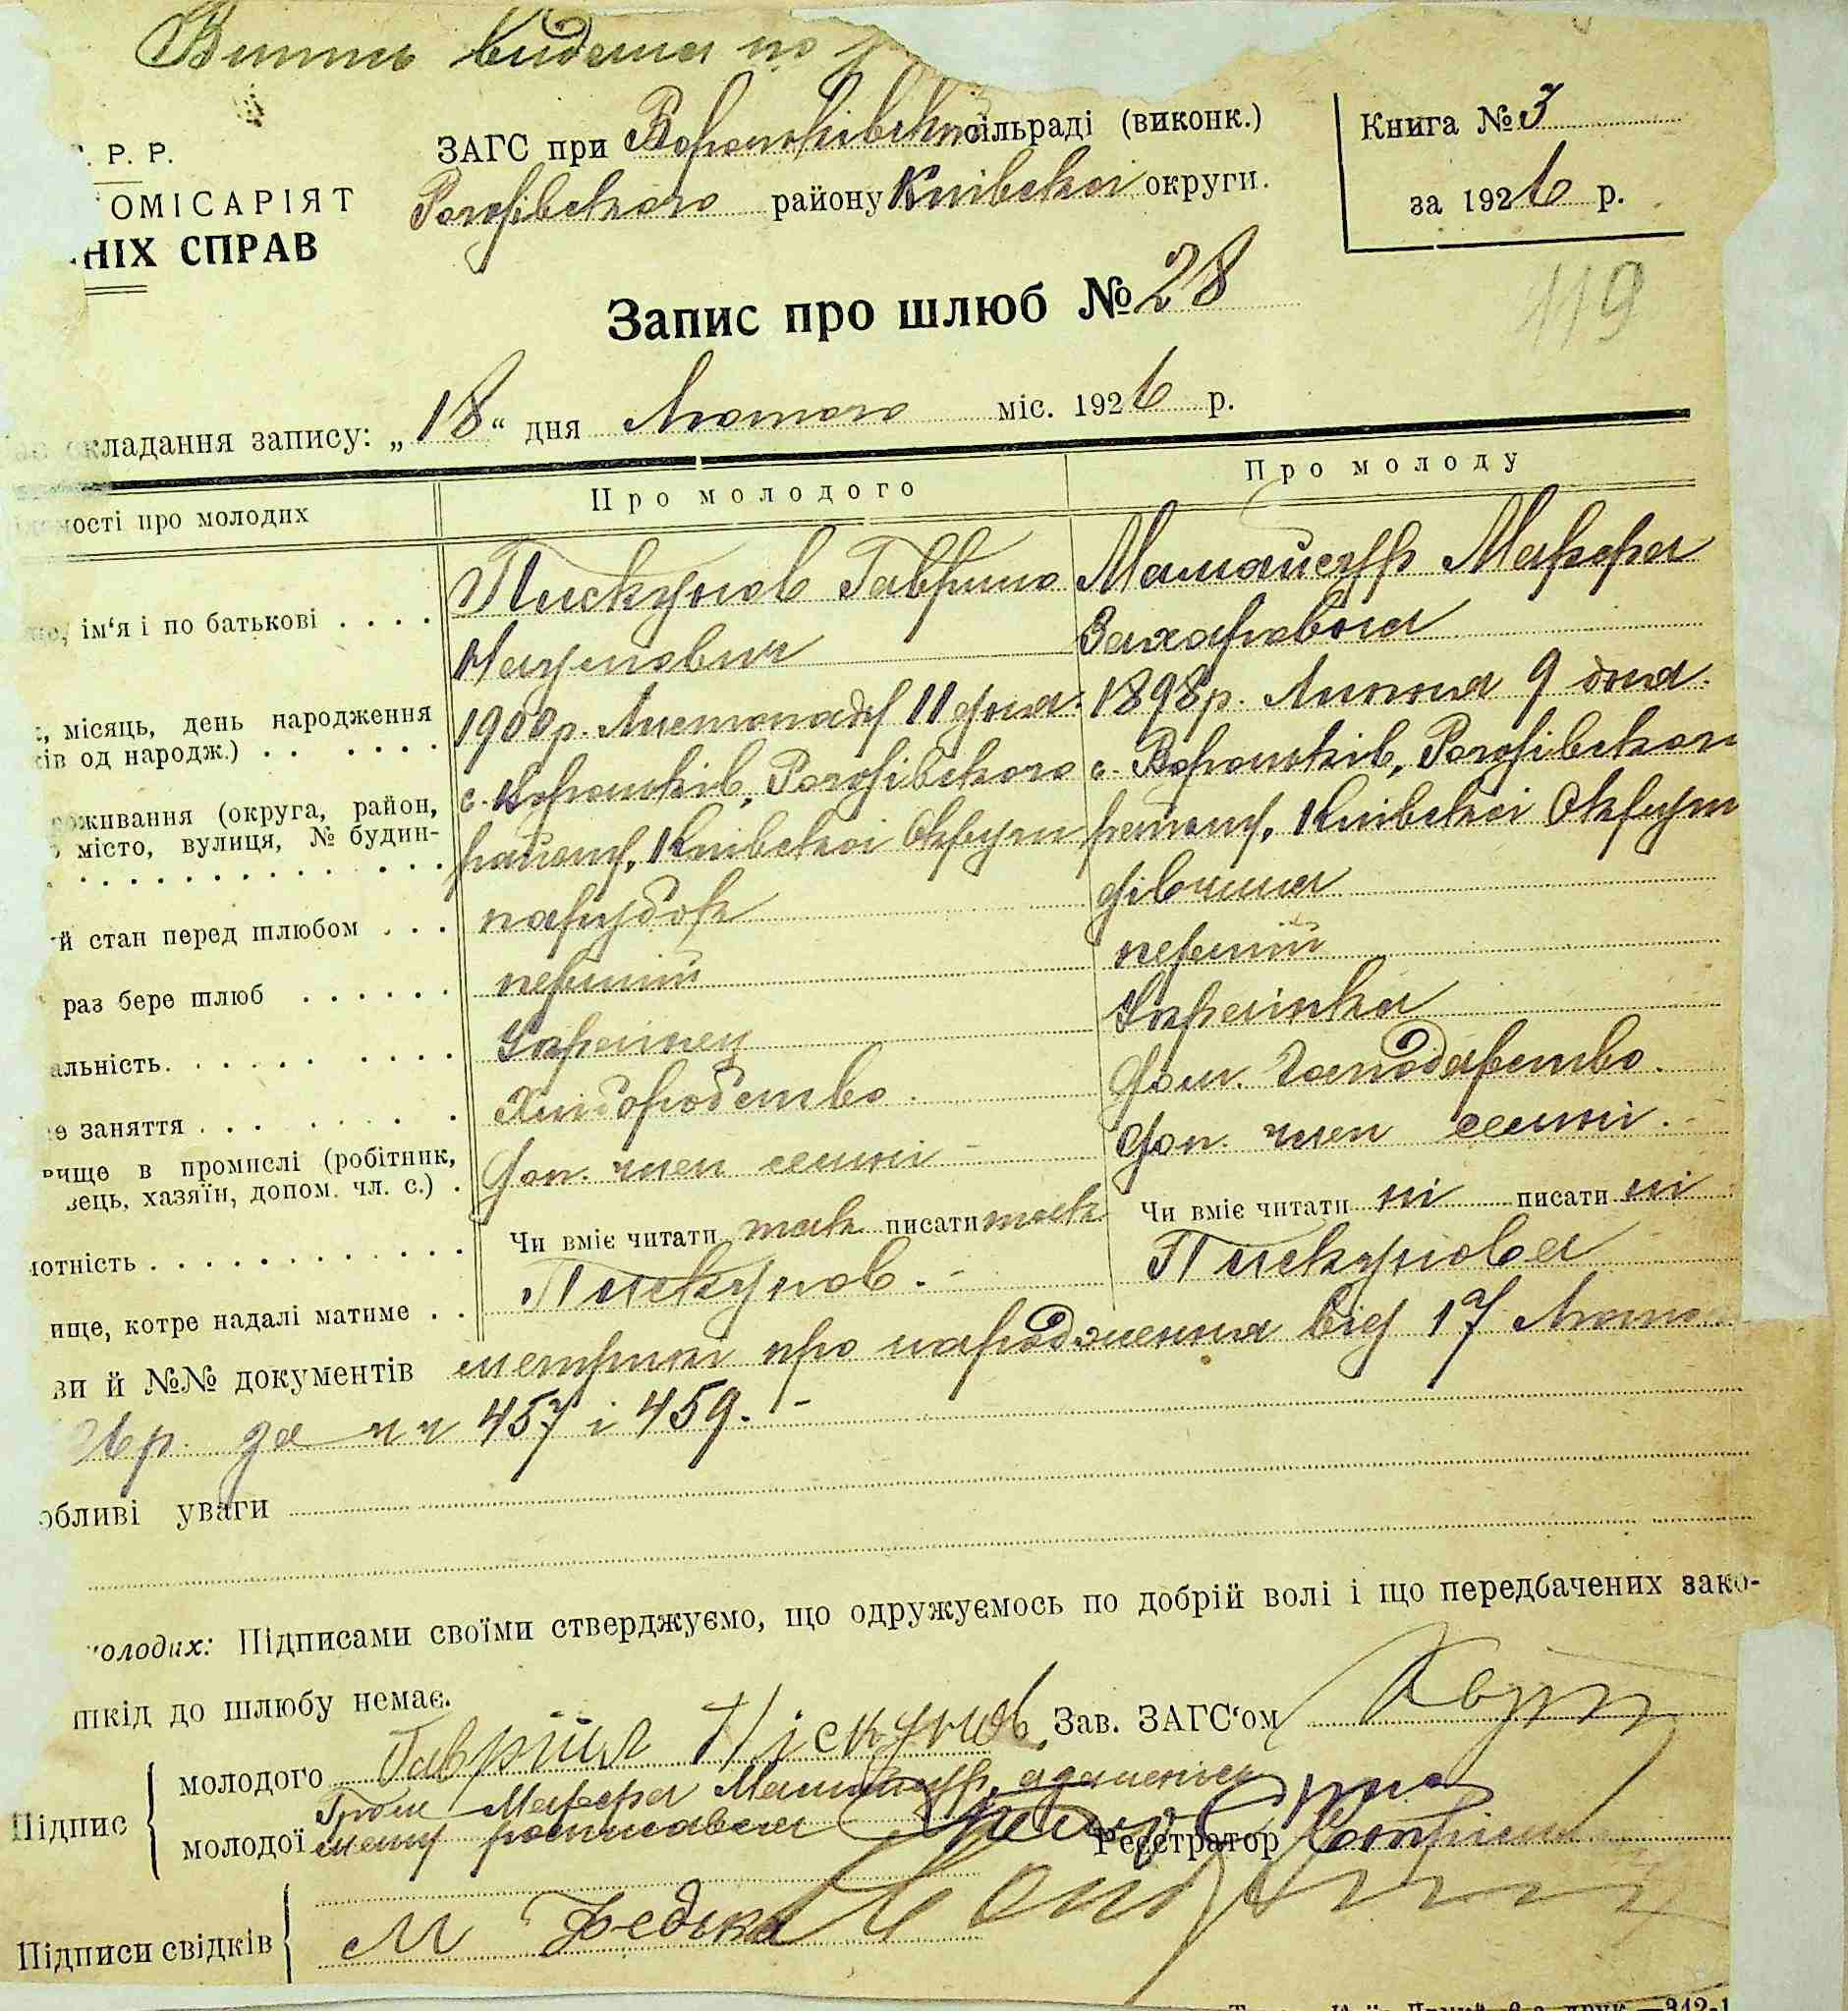 видана по
ЗАГС при Вороньківській сільраді (виконк.)
Рогозівського району Київської округи.
Книга № 3
за 1926 р.
. Р. Р.
ОМІСАРІЯТ
НІХ СПРАВ
Запис про шлюб № 28
119
складання запису: „18“ дня Лютого міс. 1926 р.
ості про молодих
Про молодого
Про молоду
ім‘я і по батькові . . . .
Пискунов Гаврило
Наумович
Мамайсур Мафра
Захаровна
, місяць, день народження
ів од народж.) . . . . . .
1900 р. Листопада 11 дня.
1898 р. Липня 9 дня.
оживання (округа, район,
місто, вулиця, № будин-
с. Вороньків, Рогозівського
району, Київської Округи
с. Вороньків, Рогозівського
району, Київської Округи
й стан перед шлюбом . . .
парубок
дівчина
раз бере шлюб . . . . . .
перший
перший
альність. . . . . . . . . .
Українец
Українка
е заняття . . . . . . . .
Хліборобство.
Дом. Господарство.
вище в промислі (робітник,
вець, хазяїн, допом. чл. с.) .
Доп. член семні
Доп. член семні.
отність . . . . . . . . . .
Чи вміє читати так писати так
Чи вміє читати ні писати ні
ище, котре надалі матиме . .
Пискунов. -
Пискунова
ви й №№ документів метрики про народження від 17 Люто
26 р. за чч 457 і 459. -
обливі уваги
олодих: Підписами своїми стверджуємо, що одружуємось по добрій волі і що передбачених зако-
шкід до шлюбу немає.
Підпис
молодого Гавріил Піскунов
Зав. ЗАГС‘ом
молодої
Мафра Мамайсур,
расписався
Реєстратор
Підписи свідків
М Федька